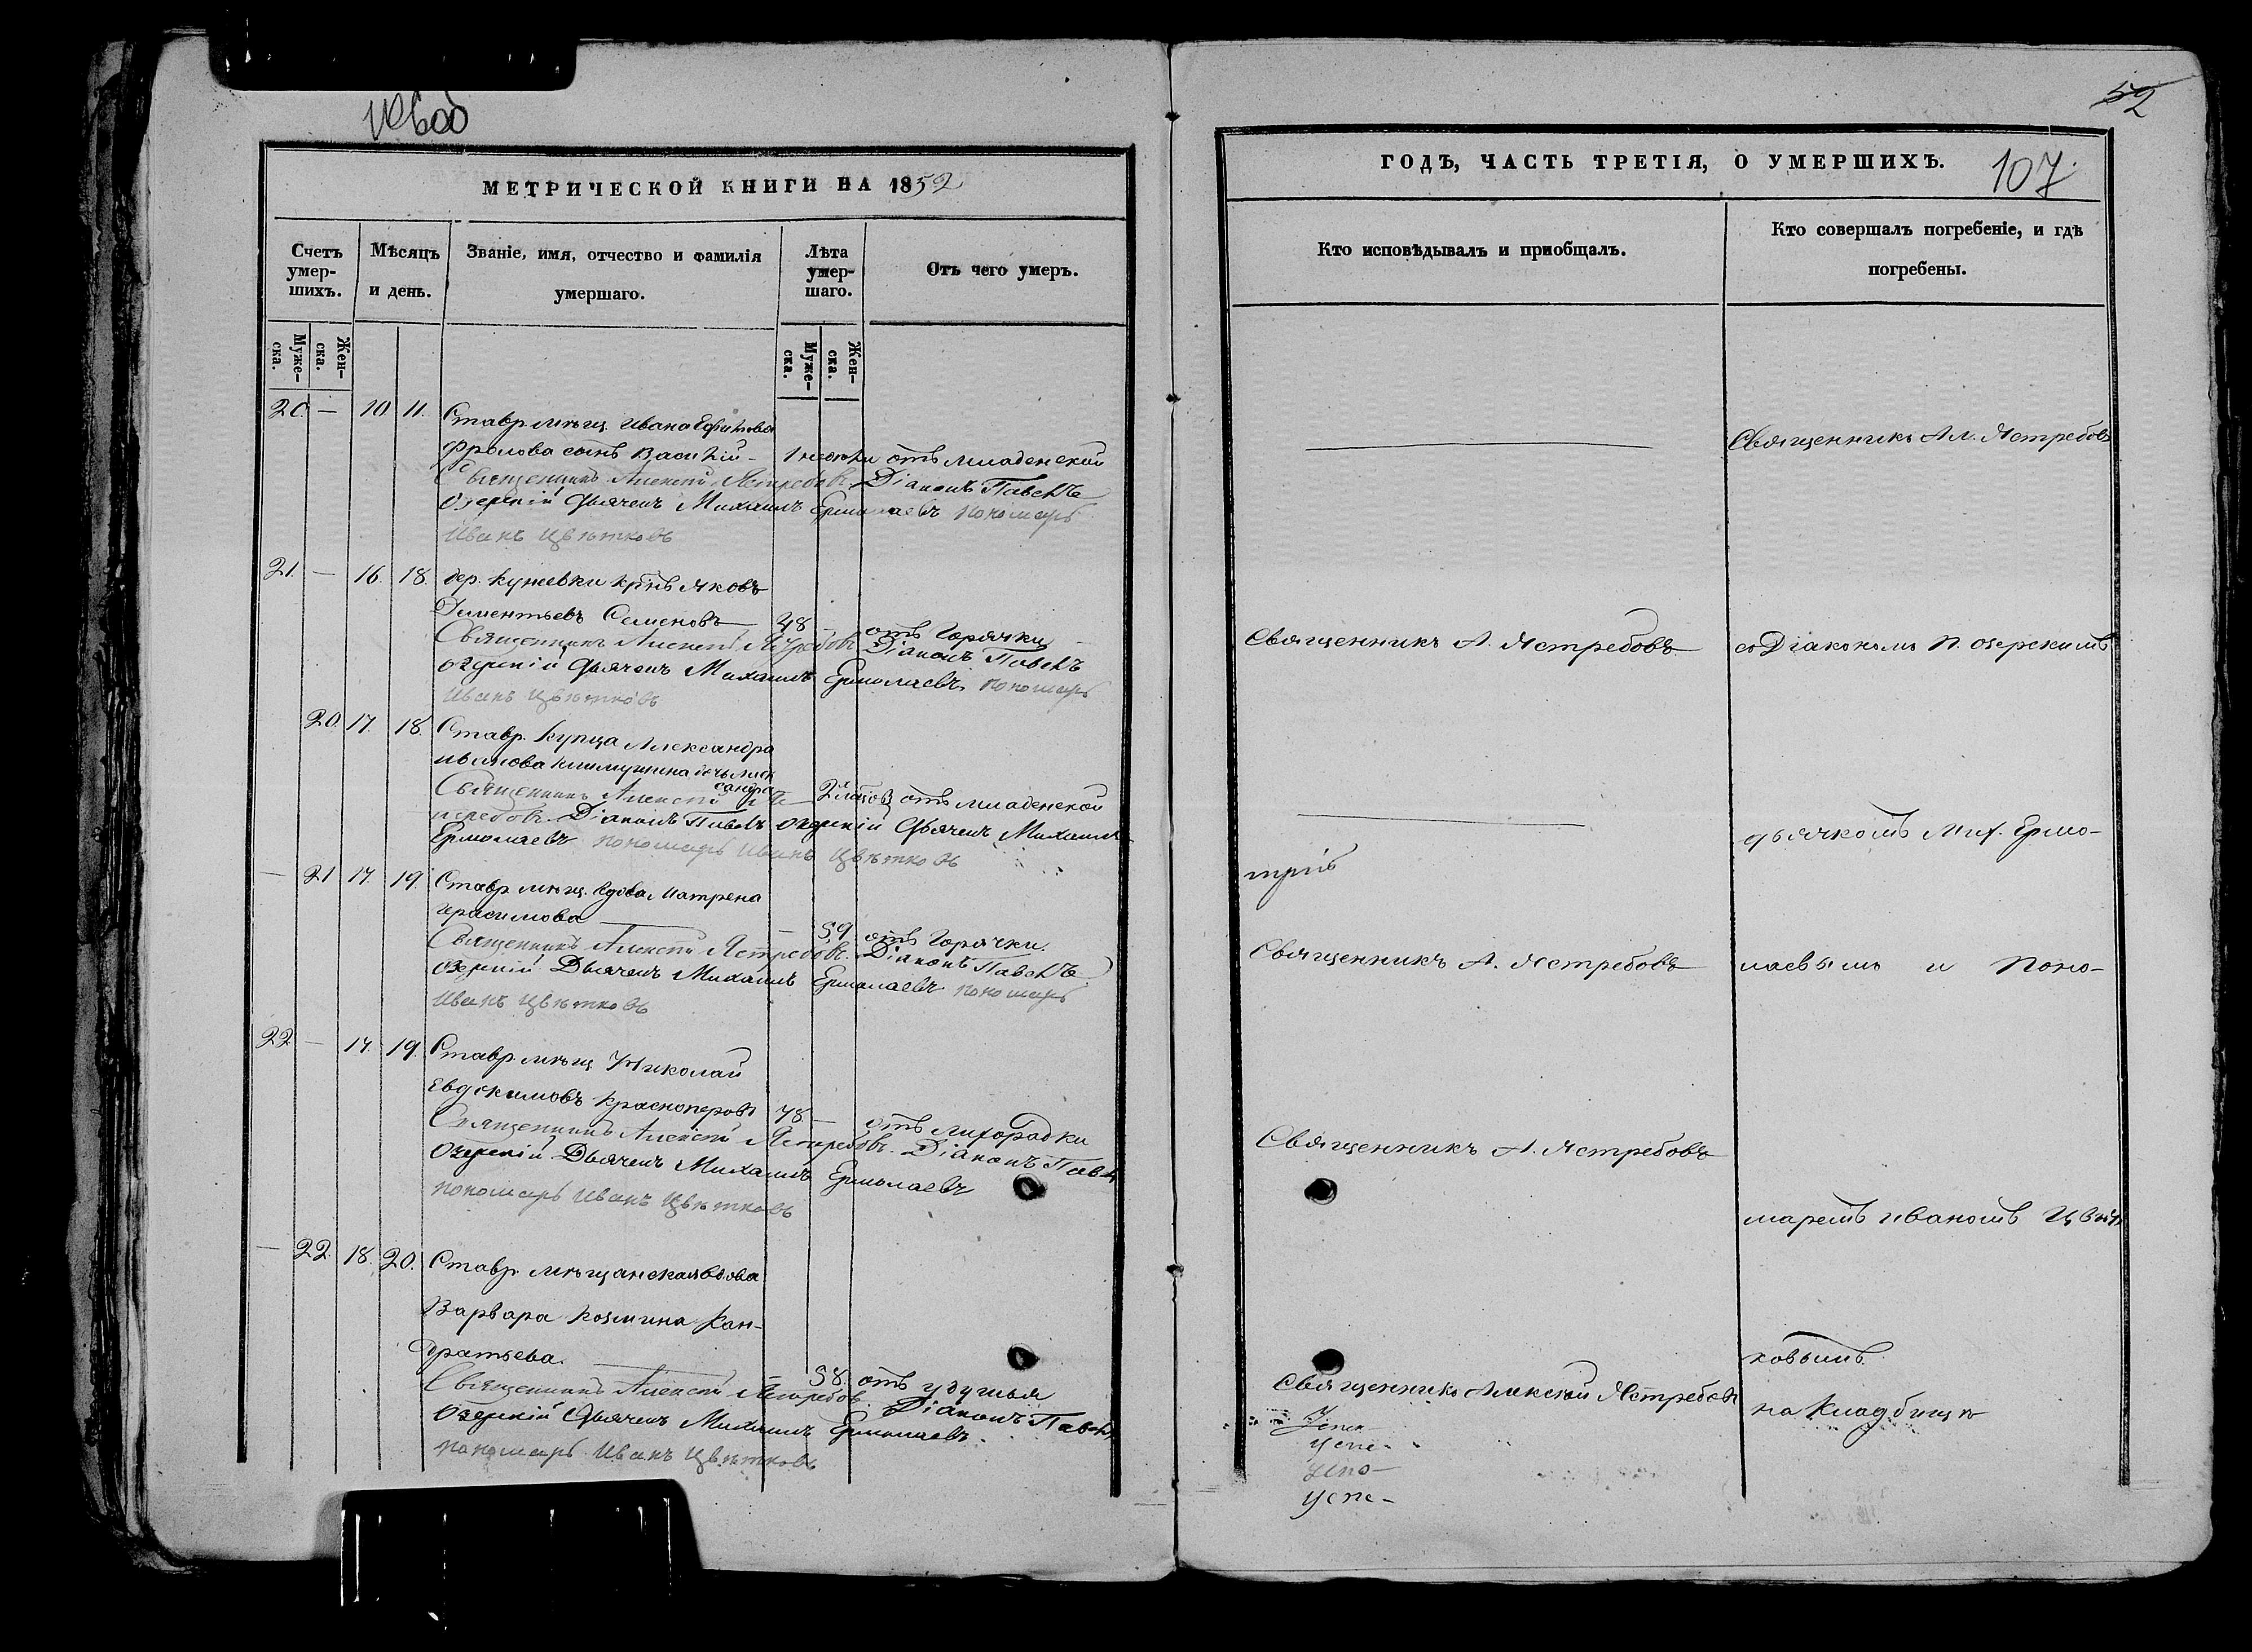 52
МЕТРИЧЕСКОЙ КНИГИ НА 1852
ГОДЪ, ЧАСТЬ ТРЕТІЯ, О УМЕРШИХЪ. 107
Счетъ умер-шихъ. Мѣсяцъ и день. Званіе, имя, отчество и фамилія умершаго. Лѣта умер-шаго. Отъ чего умеръ.
Кто исповѣдывалъ и пріобщалъ. Кто совершалъ погребеніе, и гдѣ погребены.
Муже-ска. Жен-ска. Муже-ска. Жен-ска.
20. — 10. 11. Ставр. мѣщ. Ивана Ефимова
Фролова сынъ Василій — 1 недѣли отъ младенской
Священникъ Алексѣй Ястребовъ. Діаконъ Павелъ
Озерскій Дьячекъ Михаилъ Ермолаевъ пономарь
Иванъ Цвѣтковъ
Священникъ Ал. Ястребовъ
21. — 16. 18. дер. Кунеевки крнъ Яковъ
Дементьевъ Семеновъ — 48 — отъ Горячки
Священникъ Алексѣй Ястребовъ Діаконъ Павелъ
Озерскій Дьячекъ Михаилъ Ермолаевъ. пономарь
Иванъ Цвѣтковъ
Священникъ А. Ястребовъ
со Діакономъ П. Озерскимъ
20. 17. 18. Ставр. купца Александра
Иванова Климушина дочь Алек
сандра — отъ младенской
Священникъ Алексѣй Яс-
требовъ. Діаконъ Павелъ Озерскій Дьячекъ Михаилъ
Ермолаевъ пономарь Иванъ Цвѣтковъ
дьячкомъ Мих. Ермо-
— 21 17. 19. Ставр. мѣщ. вдова Матрена
Герасимова — 59. отъ Горячки.
Священникъ Алексѣй Ястребовъ. Діаконъ Павелъ
Озерскій Дьячекъ Михаилъ Ермолаевъ пономарь
Иванъ Цвѣтковъ
Священникъ А. Ястребовъ
лаевымъ и Поно-
22 — 17. 19. Ставр. мѣщ. Николай
Евдокимовъ Красноперовъ 78. — отъ лихорадки
Священникъ Алексѣй Ястребовъ. Діаконъ Павелъ
Озерскій Дьячекъ Михаилъ Ермолаевъ
пономарь Иванъ Цвѣтковъ
Священникъ А. Ястребовъ
маремъ Иваномъ Цвѣт
— 22. 18. 20. Ставр. мѣщанская вдова
Варвара Козмина Кон-
дратьева. — 58. отъ удушья
Священникъ Алексѣй Ястребовъ. Діаконъ Павелъ
Озерскій Дьячекъ Михаилъ Ермолаевъ.
пономарь Иванъ Цвѣтковъ
Священникъ Алексѣй Ястребовъ
ковымъ
на Кладбищѣ
успе-
успе-